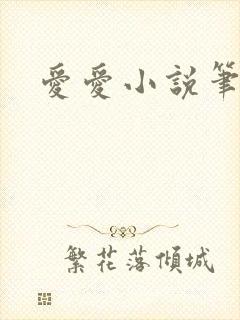 愛愛小說筆
繁花落傾城